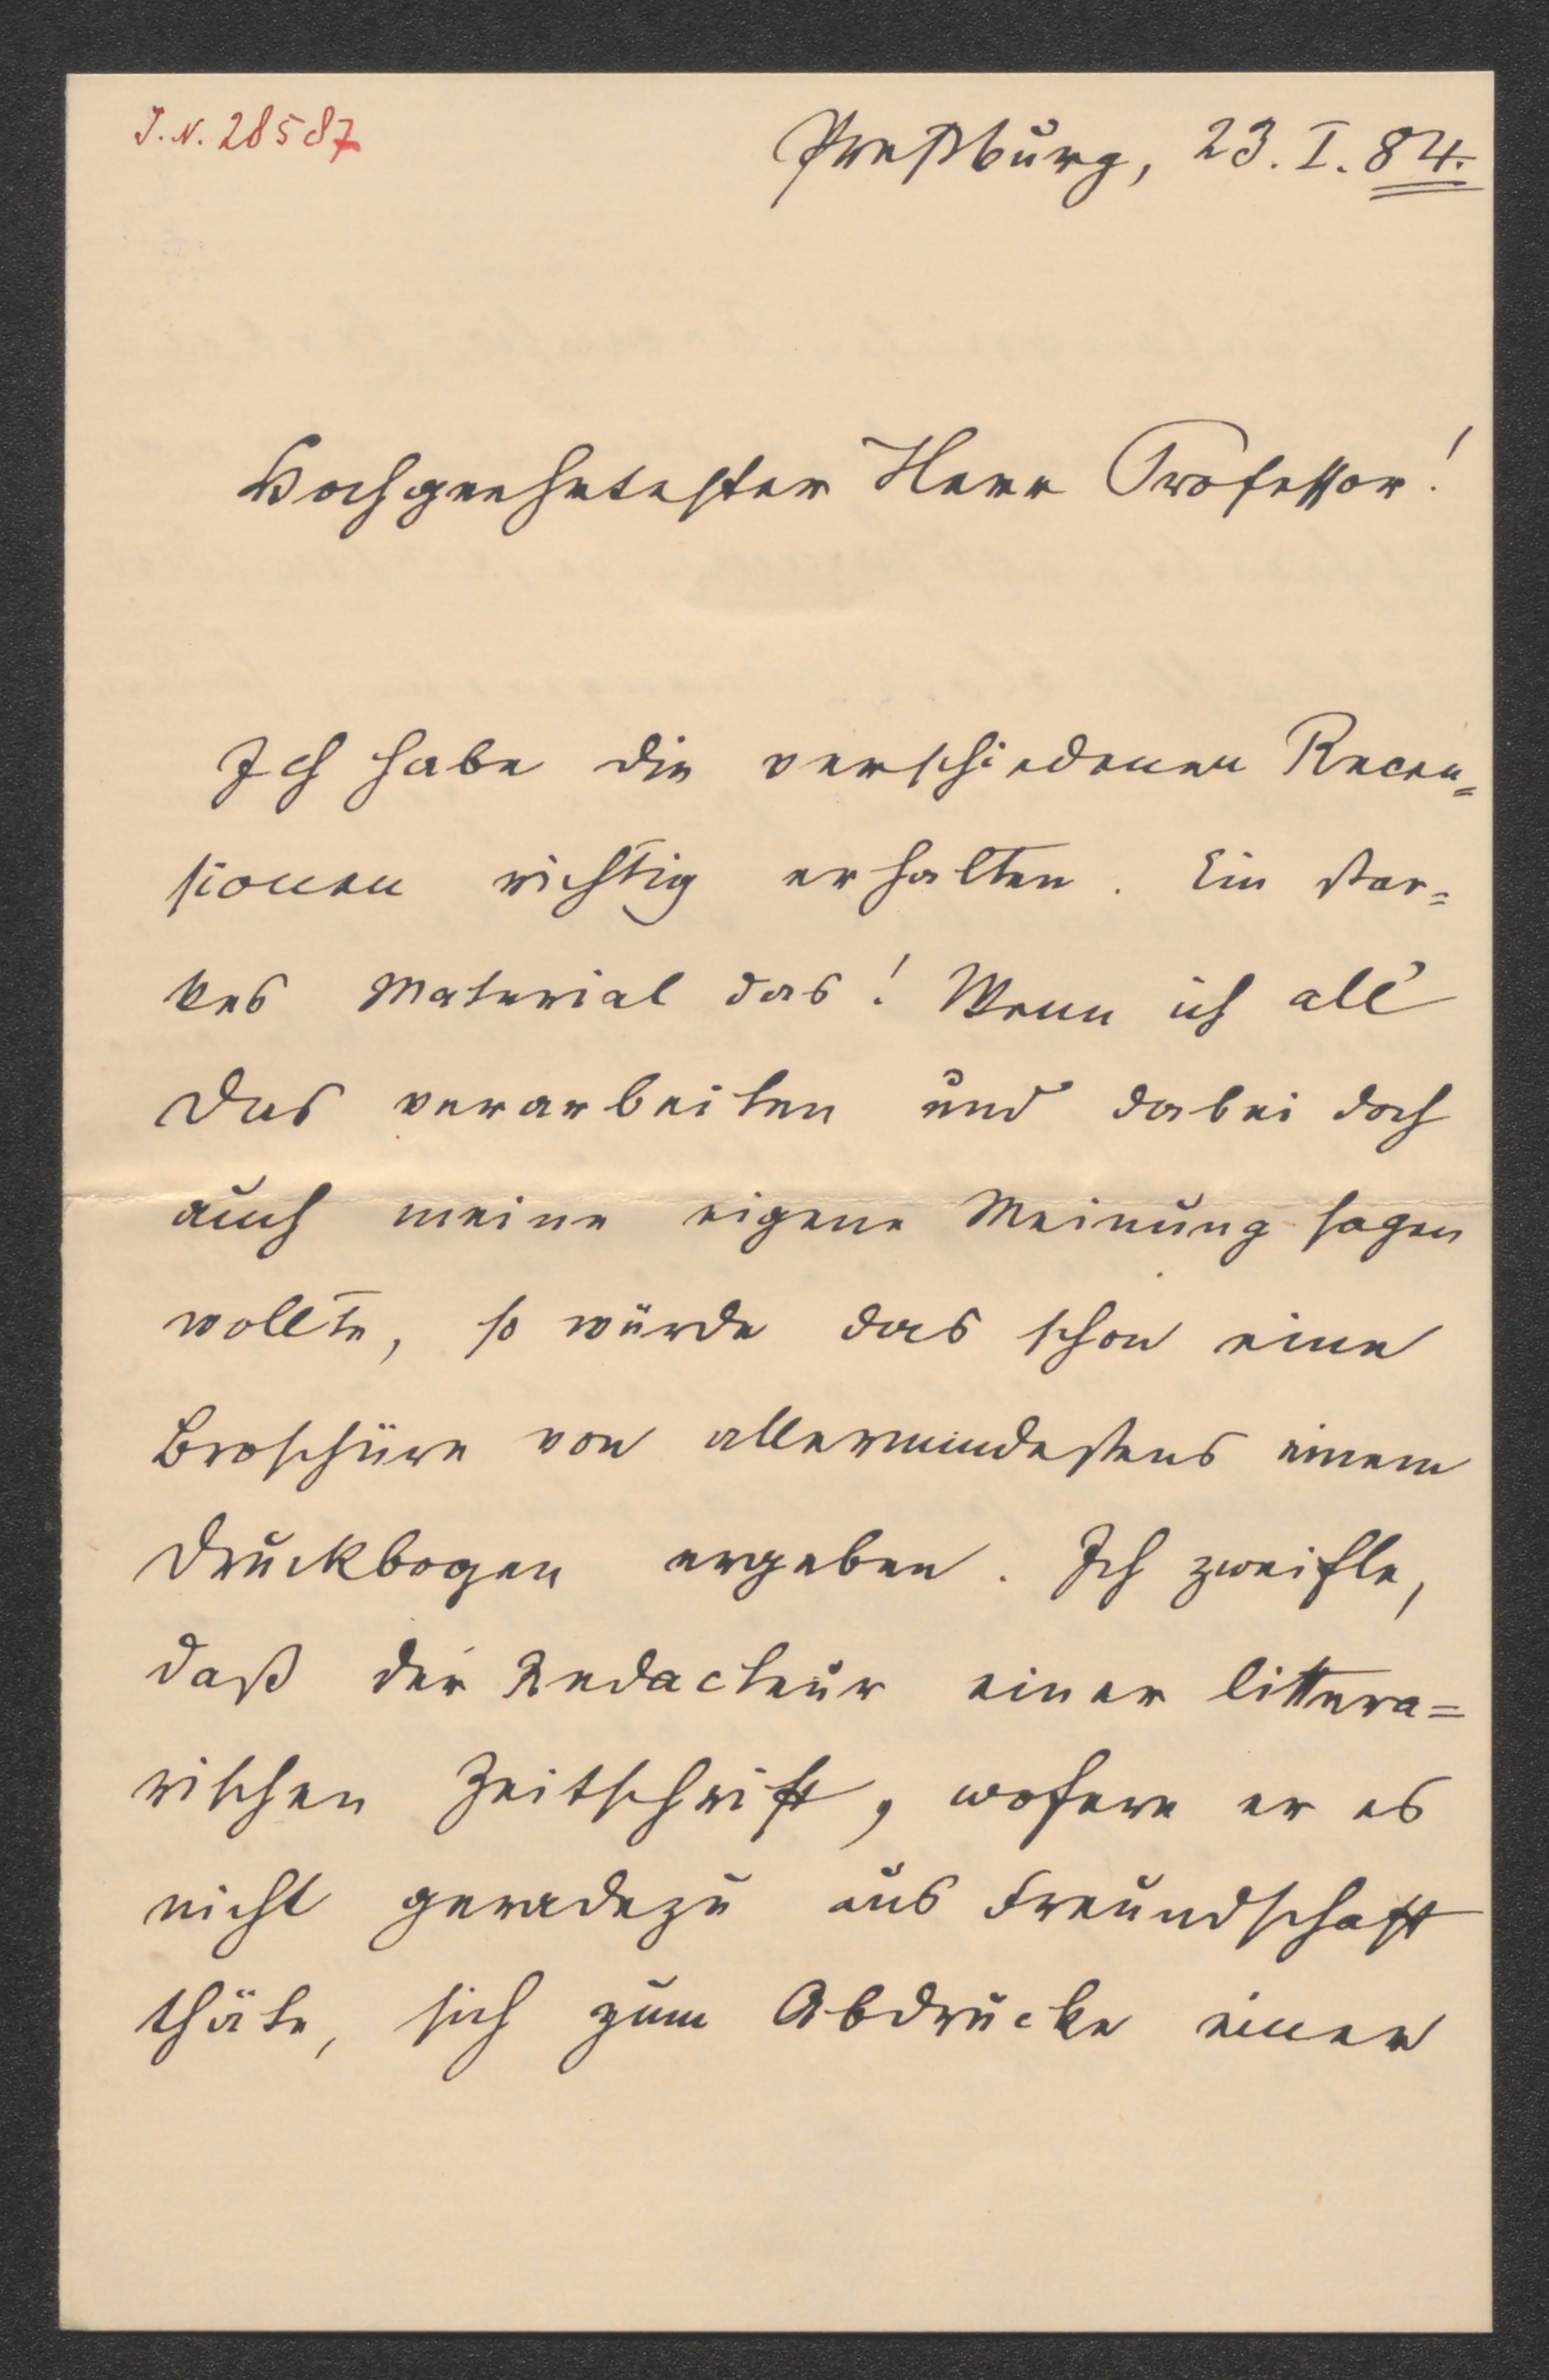 J. N. 28587
Preßburg, 23. I. 84.
Hochgeehrtester Herr Professor!
Ich habe die verschiedenen Recen=
sionen richtig erhalten. Ein star=
kes Material das! Wenn ich all'
Das verarbeiten und dabei doch
auch meine eigene Meinung sagen
wollte, so würde das schon eine
Broschüre von allermindestens einem
Druckbogen ergeben. Ich zweifle,
daß der Redacteur einer littera=
rischen Zeitschrift, wofern er es
nicht geradezu aus Freundschaft
thäte, sich zum Abdrucke einer